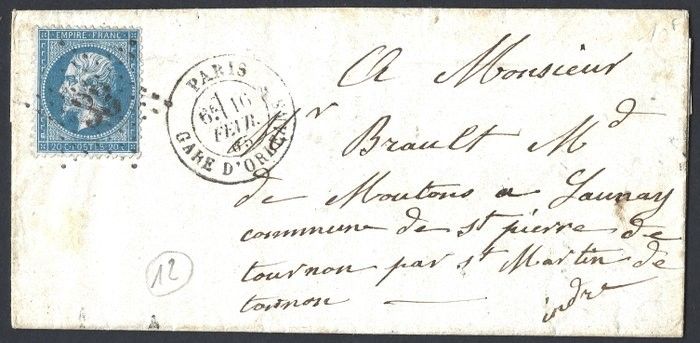 EMPIRE FRANC
20 C. POSTES 20 C.
PARIS
6E 16
FEVR.
65
GARE D'ORLEANS
A Monsieur
Mr Brault Md
de Moutons a Launay
commune de st pierre de
tournon par st Martin de
tournon —
indre
12